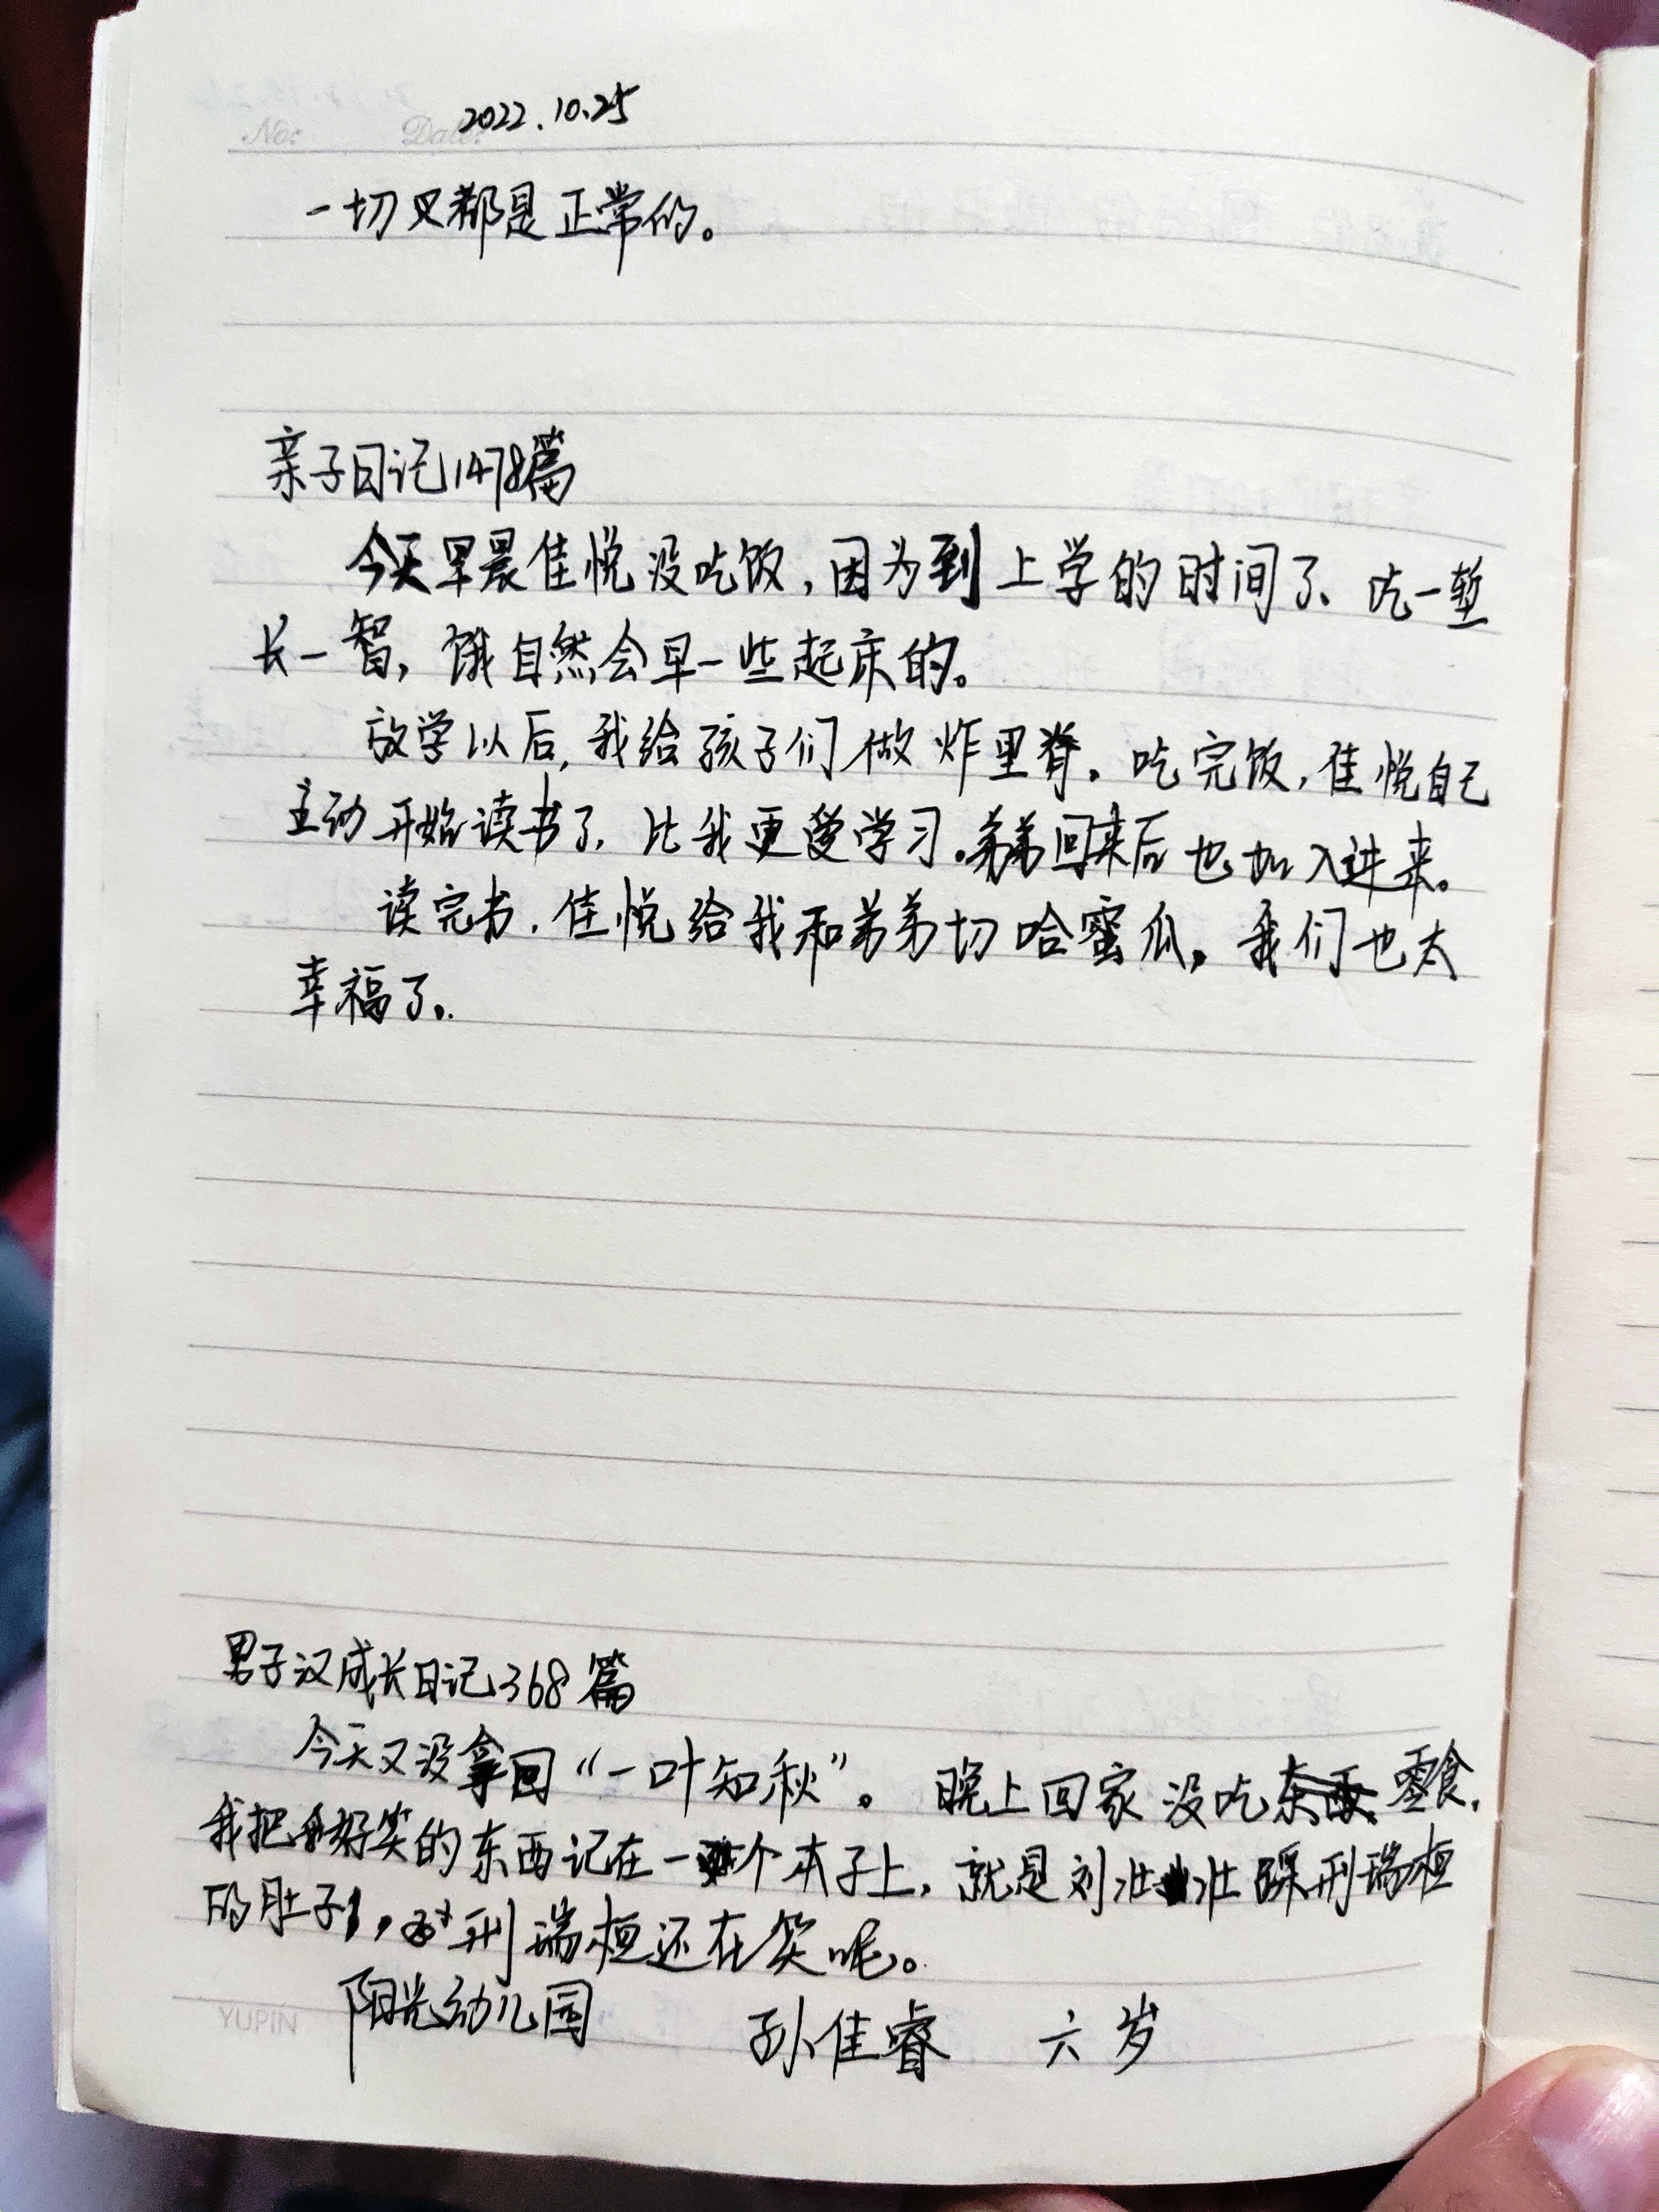 No: Date: 2022.10.25
一切又都是正常的。
亲子日记1478篇
今天早晨佳悦没吃饭,因为到上学的时间了、吃一堑
长一智,饿自然会早一些起床的。
放学以后,我给孩子们做炸里脊。吃完饭,佳悦自己
主动开始读书了,比我更爱学习。弟弟回来后也加入进来。
读完书,佳悦给我和弟弟切哈蜜瓜,我们也太
幸福了。
男子汉成长日记368篇
今天又没拿回“一叶知秋”。晚上回家没吃零食,
我把好笑的东西记在一个本子上,就是刘壮壮踩刑瑞桓
的肚子,刑瑞桓还在笑呢。
阳光幼儿园 孙佳睿 六岁
YUPIN